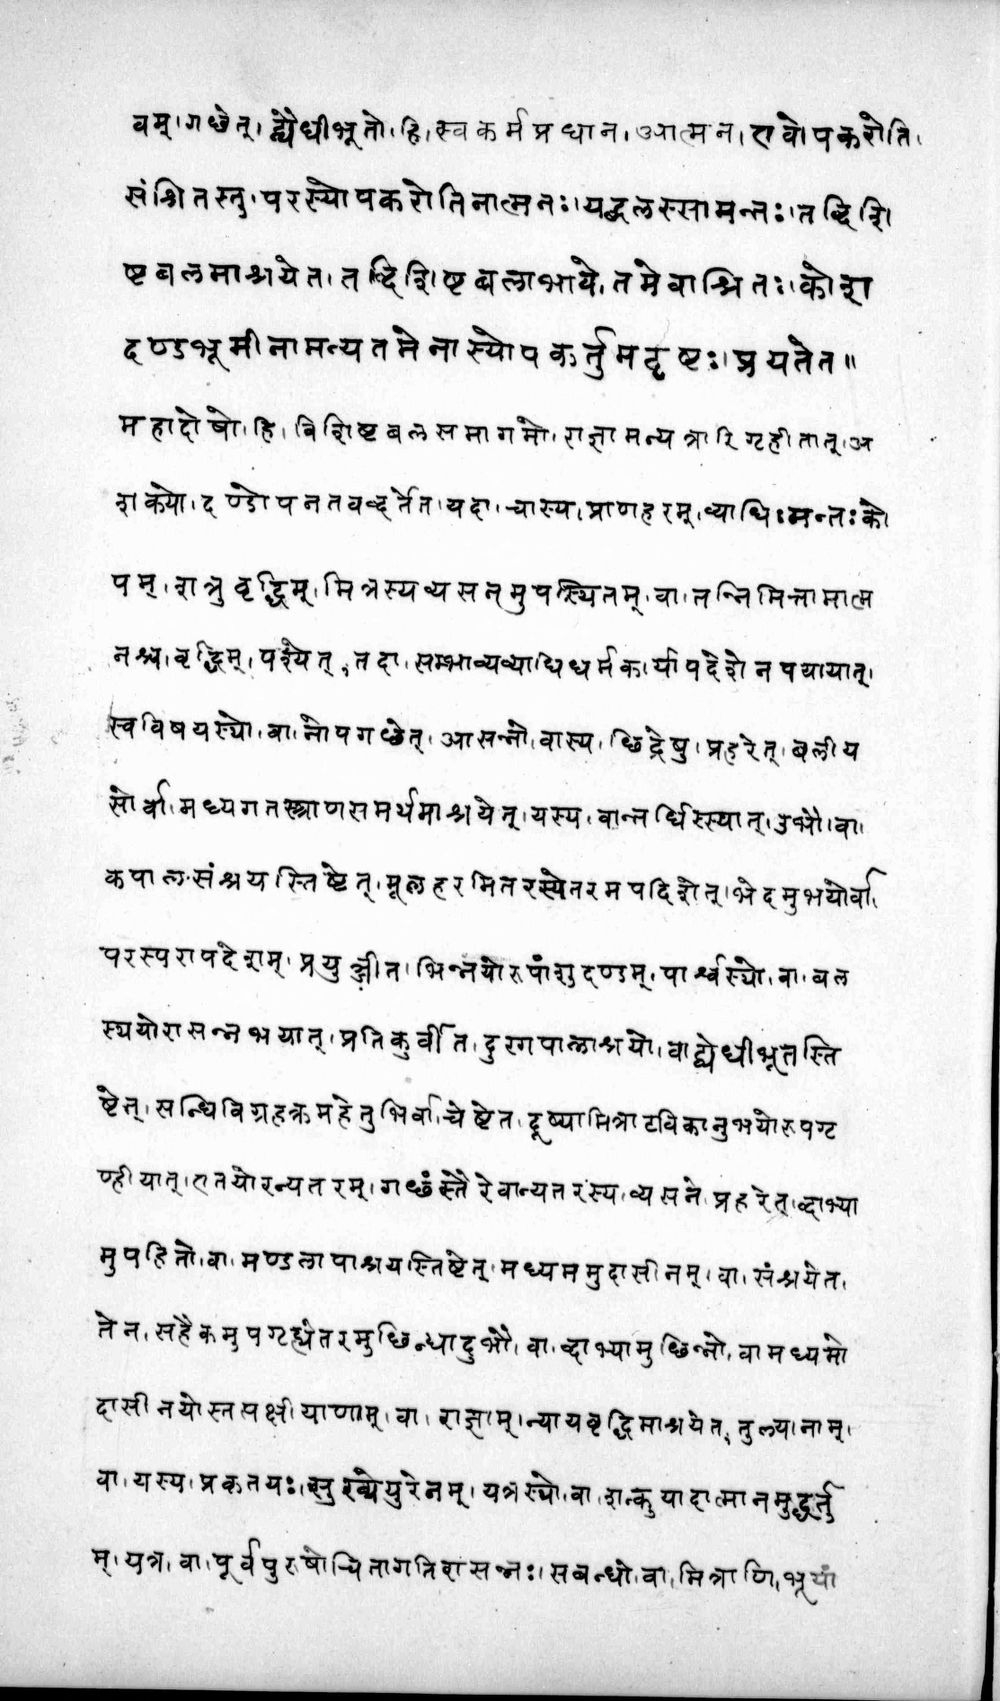 वम्।गछेत्।द्वैधीभूतो।हि।स्वकर्मप्रधान।आत्मन।एवोपकरोति।
संश्रितस्तु।परस्योपकरोतिनात्मनः।यद्बलस्सामन्तः।तद्विशि
ष्टबलमाश्रयेत।तद्विशिष्टबलाभावे।तमेवाश्रितः।कोश
दण्डभूमीनामन्यतमेनास्योपकर्तुमदृष्टः।प्रयतेत॥
महादोषो।हि।विशिष्टबलसमागमो।राज्ञामन्यत्रारिगृहीतात्।अ
शक्यो।दण्डोपनतवद्वर्तेत।यदा।चास्य।प्राणहरम्।व्याधिमन्तःको
पम्।शत्रुवृद्धिम्।मित्रस्यव्यसनमुपस्थितम्।वा।तन्निमित्तामात्म
नश्च।वृद्धिम्।पश्येत्,तदा।सम्भाव्यव्याधिधर्मकार्यापदेशेनपयायात्।
स्वविषयस्थो।वा।नोपगछेत्।आसन्नो।वास्य।छिद्रेषु।प्रहरेत्।बलीय
सोर्वा।मध्यगतस्त्राणसमर्थमाश्रयेत्।यस्य।वान्तर्धिस्स्यात्।उभौ।वा।
कपालसंश्रयस्तिष्टेत्।मूलहरमितरस्येतरमपदिशेत्।भेदमुभयोर्वा।
परस्परापदेशम्।प्रयुञ्जीत।भिन्नयोरुपांशुदण्डम्।पार्श्वस्थो।वा।बल
स्थयोरासन्नभयात्।प्रतिकुर्वीत।दुरगपालाश्रयो।वाद्वेधीभूतस्ति
ष्टेत्।सन्धिविग्रहक्रमहेतुभिर्वा।चेष्टेत।दूष्यामित्राटविकानुभयोरुपगृ
ण्हीयात्।एतयोरन्यतरम्।गछंस्तैरेवान्यतरस्य।व्यसने।प्रहरेत्।द्वाभ्या
मुपहितो।वा।मण्डलापाश्रयस्तिष्टेत्।मध्यममुदासीनम्।वा।संश्रयेत।
तेन।सहैकमुपगृह्येतरमुछिन्द्यादुभौ।वा।द्वाभ्यामुछिन्नो।वामध्यमो
दासीनयोस्तत्पक्षीयाणाम्।वा।राज्ञाम्।न्यायवृद्धिमाश्रयेत,तुल्यानाम्।
वा।यस्य।प्रकतयः।सुख्येयुरेनम्।यत्रस्थो।वा।शक्नुयादात्मानमुद्धर्तु
म्।यत्र।वा।पूर्वपुरुषोचितागतिरासन्नः।सबन्धो।वा।मित्राणि।भूयां